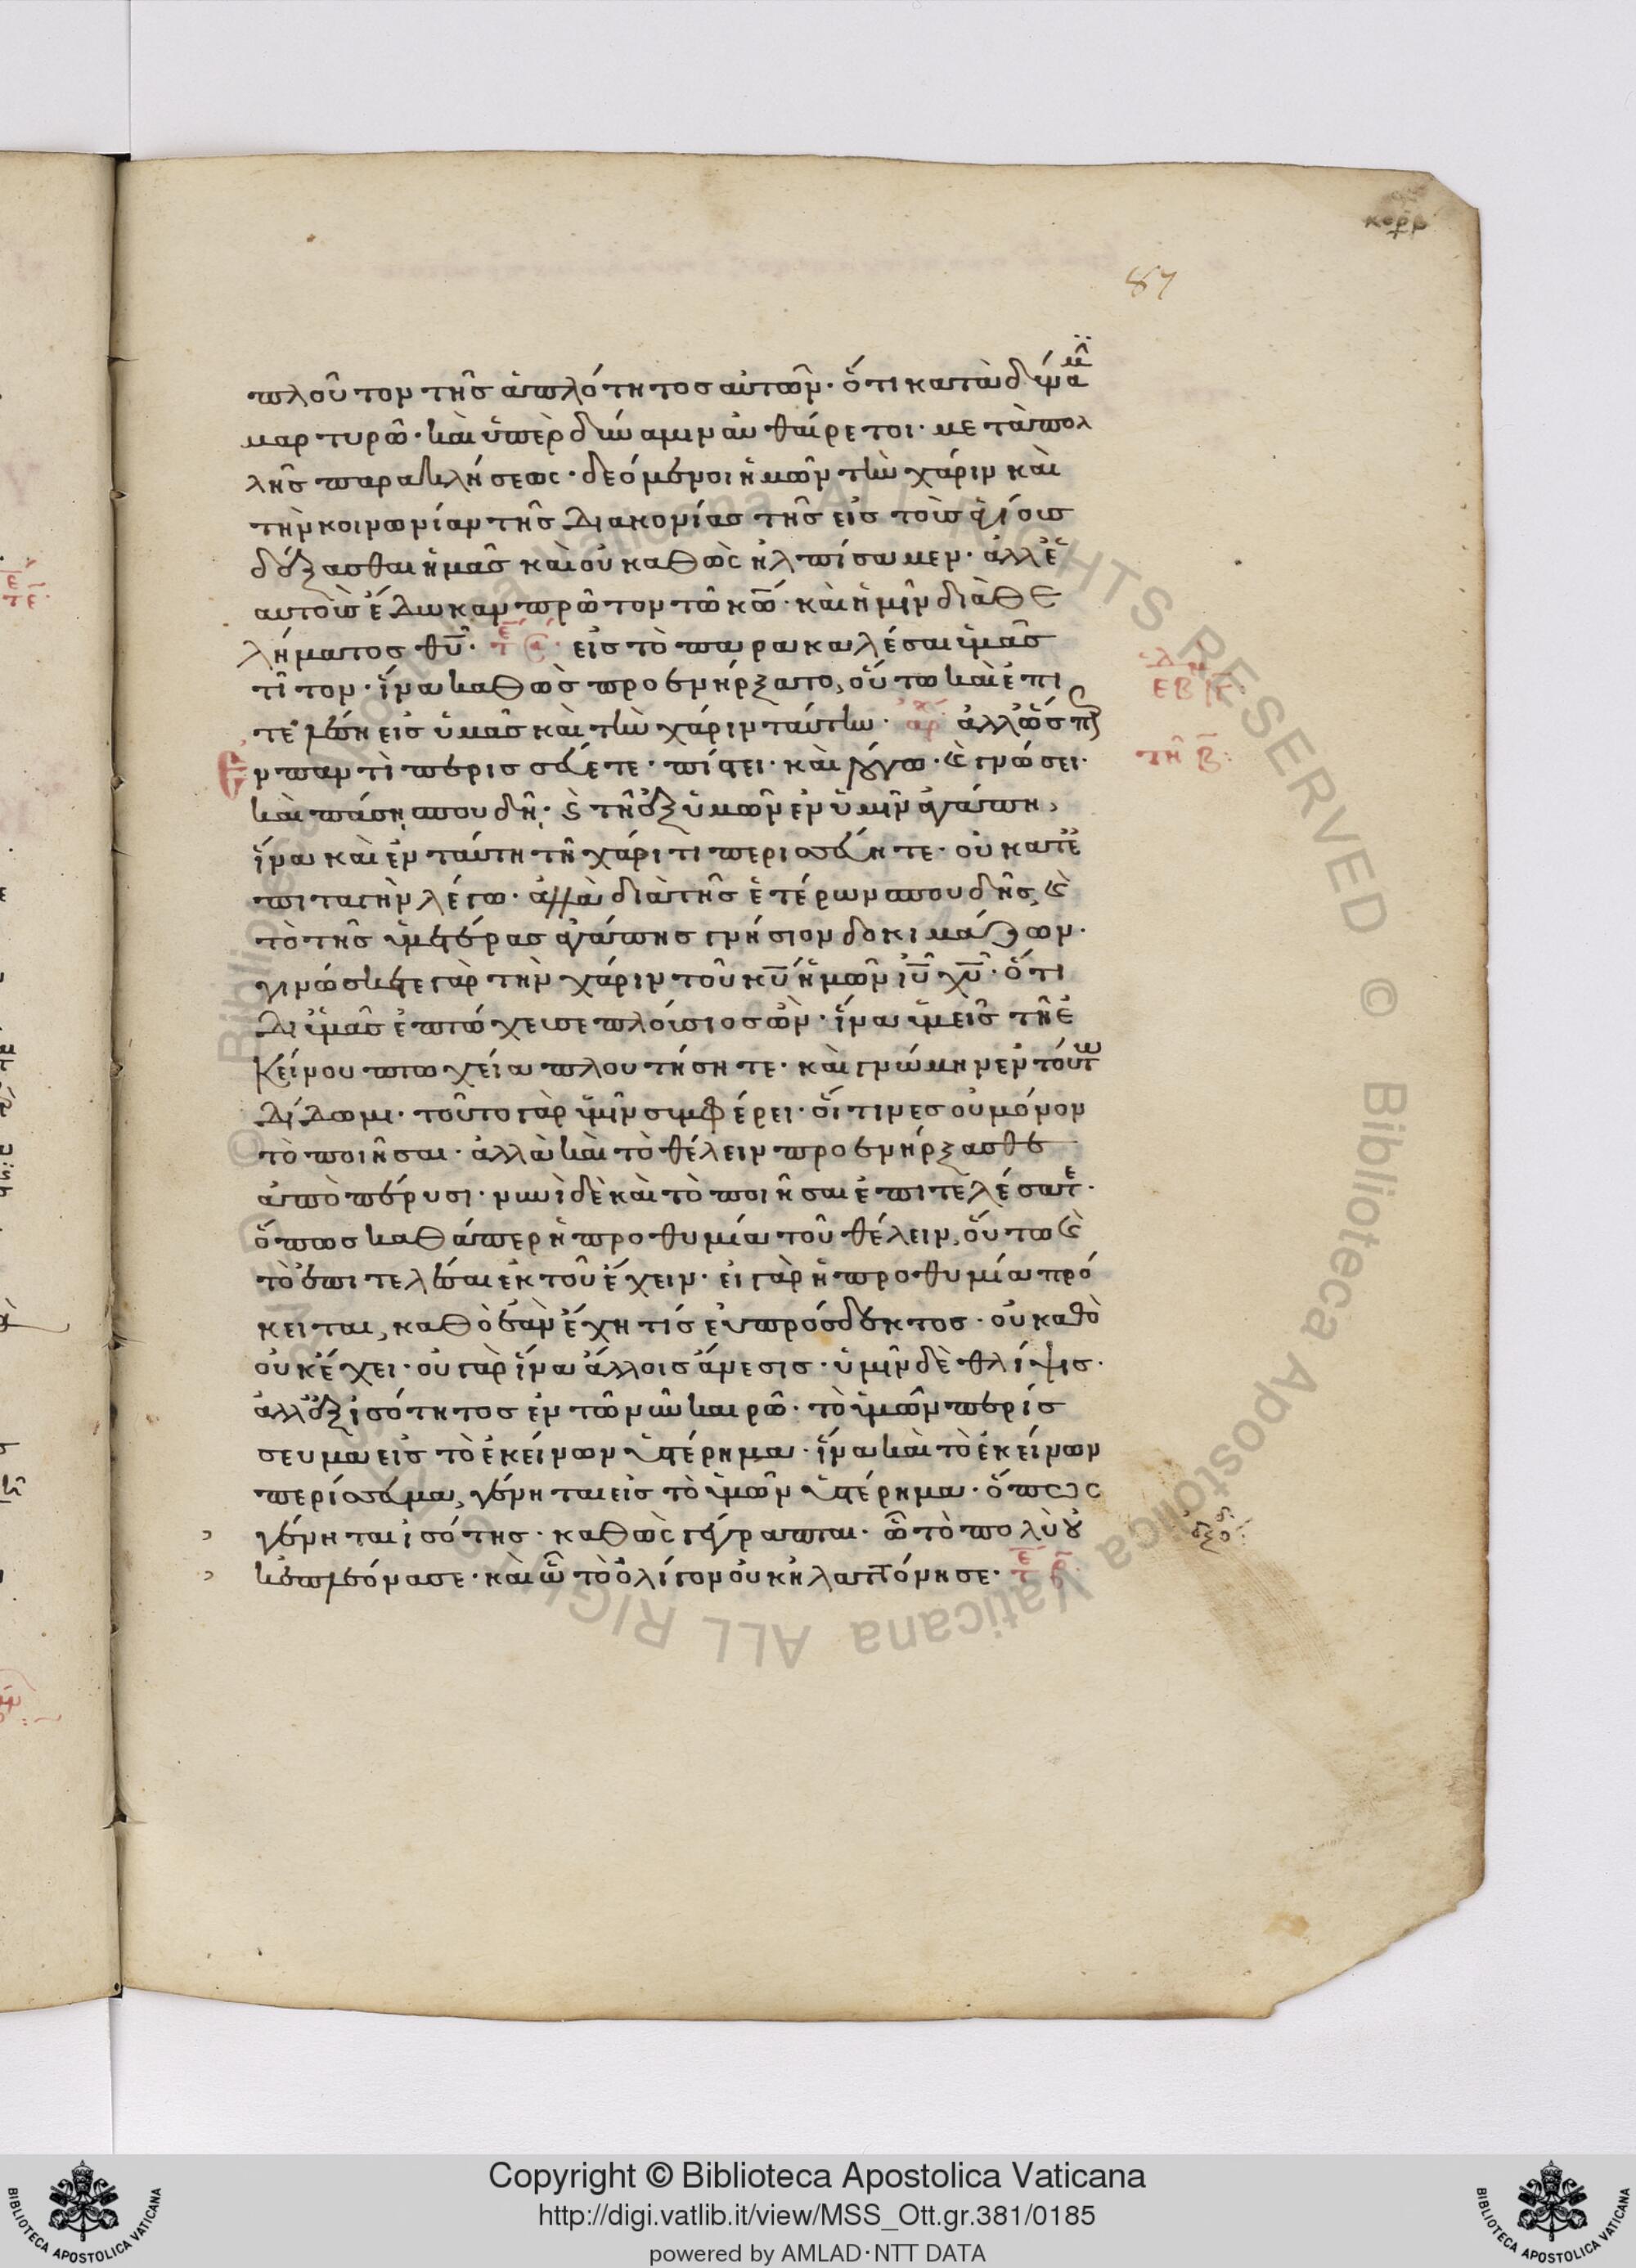 κορρ
87
πλοῦτον τῆς ἁπλότητος αὐτῶν· ὅτι κατὰ δύναμῖ
μαρτυρῶ· καὶ ὑπὲρ δύναμιν αὐθαίρετοι· μετὰ πολ
λῆς παρακλήσεως· δεόμενοι ἡμῶν τὴν χάριν καὶ
τὴν κοινωνίαν τῆς διακονίας τῆς εἰς τοὺς ἁγίους
δέξασθαι ἡμᾶς καὶ οὐ καθὼς ἠλπίσαμεν· ἀλλ' ἑ
αυτοὺς ἔδωκαν πρῶτον τῶ κῶ· καὶ ἡμῖν διὰ θε
λήματος θῦ· εἰς τὸ παρακαλέσαι ἡμᾶς
τίτον· ἵνα καθὼς προενήρξατο, οὕτω καὶ ἐπι
τελέση εἰς ὑμᾶς καὶ τὴν χάριν ταύτην· ἀρ ἀλλ' ὥσπερ
ἐν παντὶ περισσεύετε· πίστει· καὶ λόγω· καὶ γνώσει·
καὶ πάση σπουδῆ· καὶ τῆ ἐξ ὑμῶν ἐν ὑμῖν ἀγάπη,
ἵνα καὶ ἐν ταύτη τῆ χάριτι περισσεύητε· οὐ κατ' ἐ
πιταγὴν λέγω· ἀλλὰ διὰ τῆς ἑτέρων σπουδῆς, καὶ
τὸ τῆς ὑμετέρας ἀγάπης γνήσιον δοκιμάζων·
γινώσκετε γὰρ τὴν χάριν τοῦ κῦ ἡμῶν ἰῦ χῦ· ὅτι
δι' ὑμᾶς ἐπτώχευσε πλούσιος ὢν· ἵνα ὑμεῖς τῆ ἐ
κείνου πτωχεία πλουτήσητε· καὶ γνώμην ἐν τούτω
δίδωμι· τοῦτο γὰρ ὑμῖν συμφέρει· οἵτινες οὐ μόνον
τὸ ποιῆσαι· ἀλλὰ καὶ τὸ θέλειν προενήρξασθε
ἀπὸ πέρυσι· νυνὶ δὲ καὶ τὸ ποιῆσαι ἐπιτελέσατε·
ὅπως καθάπερ ἡ προθυμία τοῦ θέλειν, οὕτω καὶ
τὸ ἐπιτελέσαι ἐκ τοῦ ἔχειν· εἰ γὰρ ἡ προθυμία πρό
κειται, καθὸ ἐὰν ἔχη τίς εὐπρόσδεκτος· οὐ καθὸ
οὐκ ἔχει· οὐ γὰρ ἵνα ἄλλοις ἄνεσις· ὑμῖν δὲ θλίψις·
ἀλλ' ἐξ ἰσότητος ἐν τῶ νῦν καιρῶ· τὸ ὑμῶν περίσ
σευμα εἰς τὸ ἐκείνων ὑστέρημα· ἵνα καὶ τὸ ἐκείνων
περίσσευμα, γένηται εἰς τὸ ὑμῶν ὑστέρημα· ὅπως
γένηται ἰσότης· καθὼς γέγραπται· ὧ τὸ πολὺ οὐ
κ ἐπλεόνασε· καὶ ὧ τὸ ὀλίγον οὐκ ἠλαττόνησε·
τῆ β